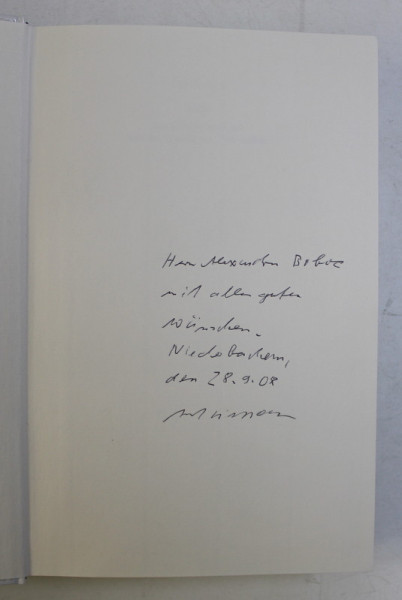 Herrn Alexander Boboc
mit allen guten
Wünschen.
Niederbachem,
den 28.9.08